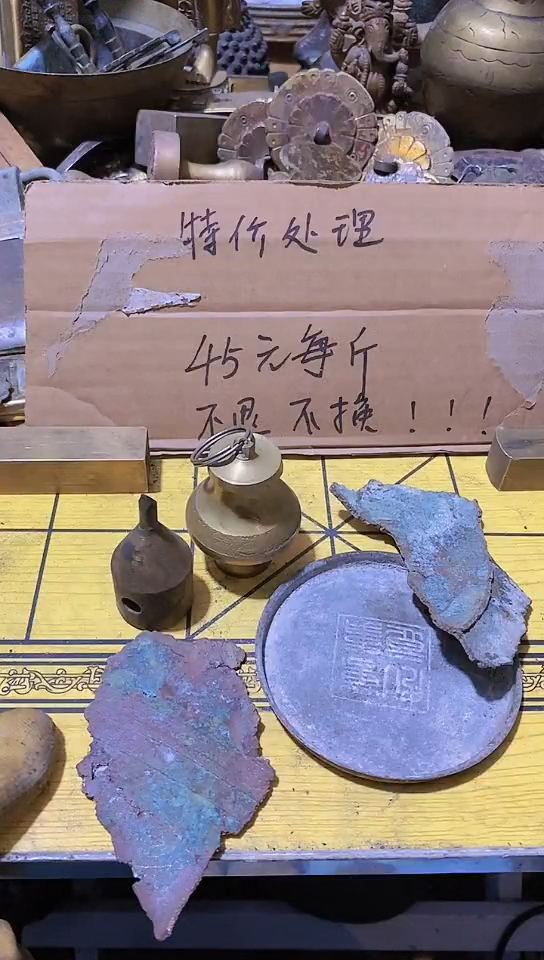 特价处理
45元每斤
不退 不换！！！